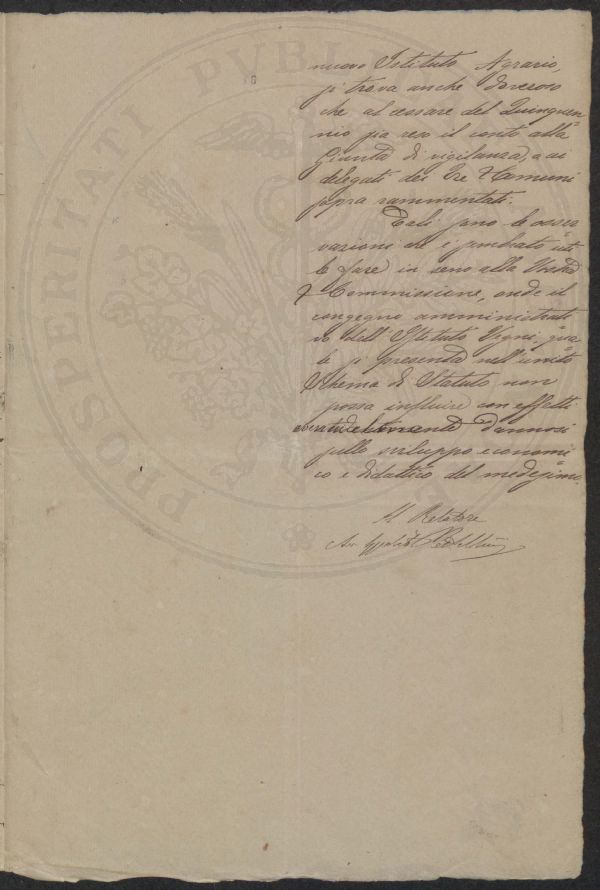 nuovo Istituto Agrario,
si trova anche doveroso
che al cessare del Quinquen
nio sia reso il conto alla
Giunta di vigilanza, a ai
delegati dei Tre Comuni
sopra rammentati.
Tali sono le osser
vazioni che si
le fare in seno alla Vostra
Commissione, onde il
congegno amministrati
vo dell'Istituto Vegni, qua
le si presenta nell'unito
Schema di Statuto non
possa influire con effetti
dannosi
sullo sviluppo economi
co e didattico del medesimo.
Il Relatore
Av.
PROSPERITATI PVBLI